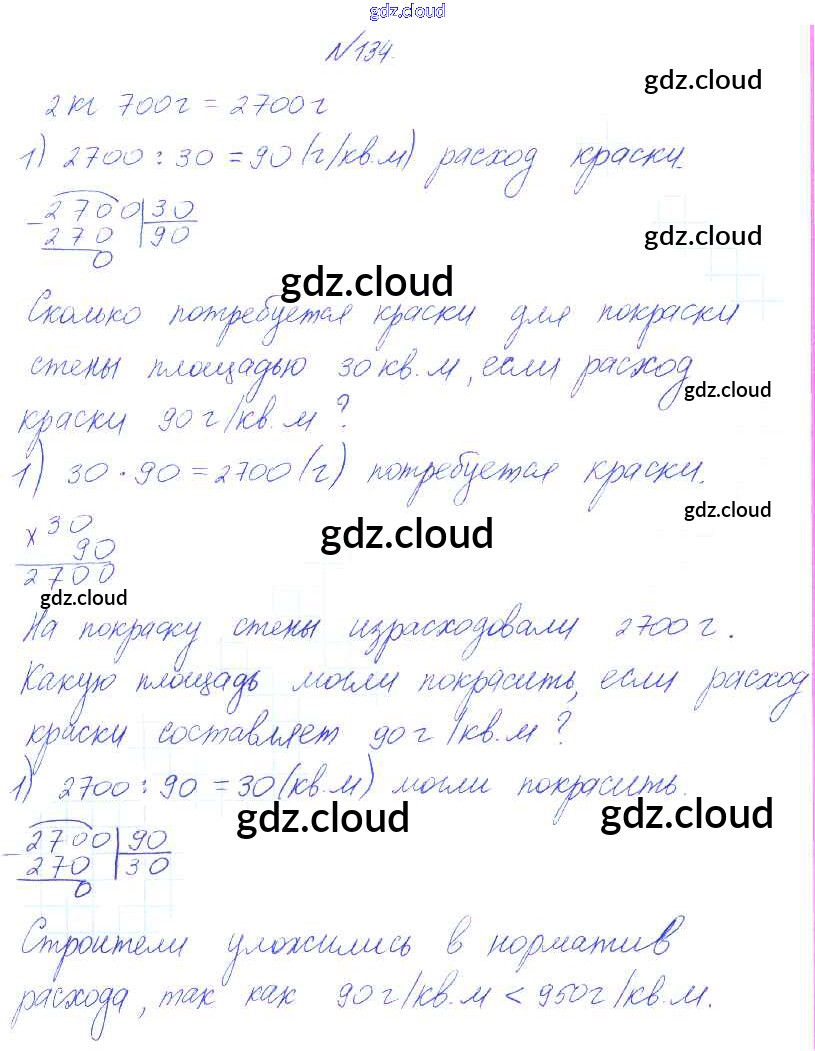 gdz.cloud
№134.
gdz.cloud
2 кг 700г = 2700г
1) 2700 : 30 = 90 (г/кв.м) расход краски.
- 2700 | 30
270 | 90
0
gdz.cloud
gdz.cloud
Сколько потребуется краски для покраски
стены площадью 30 кв.м, если расход
gdz.cloud
краски 90 г/кв.м?
1) 30 · 90 = 2700 (г) потребуется краски.
gdz.cloud
х 30
90
gdz.cloud
2700
gdz.cloud
На покраску стены израсходовали 2700 г.
Какую площадь могли покрасить, если расход
краски составляет 90 г/кв.м?
1) 2700 : 90 = 30 (кв.м) могли покрасить.
gdz.cloud
gdz.cloud
- 2700 | 90
270 | 30
0
Строители уложились в норматив
расхода, так как 90 г/кв.м < 950 г/кв.м.